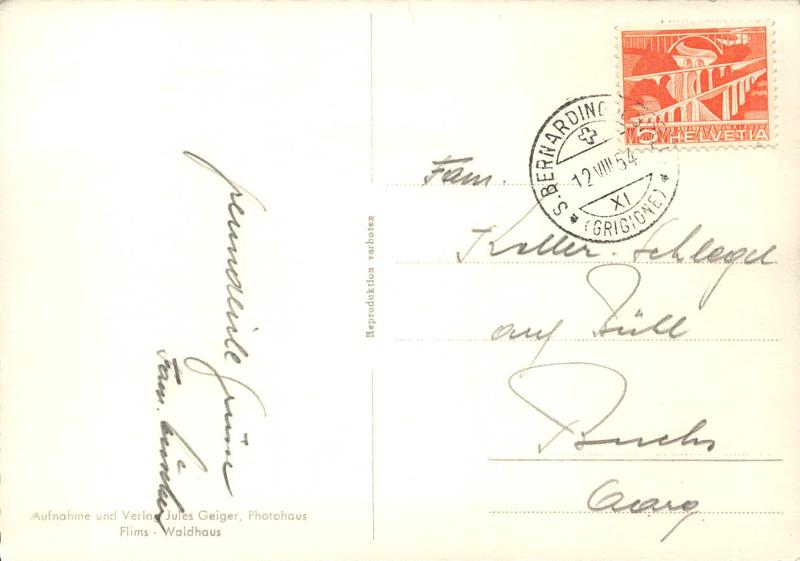 freundliche Grüsse
Fam.
Aufnahme und Verlag Jules Geiger, Photohaus
Flims - Waldhaus
Reproduktion verboten
5 HELVETIA
S. BERNARDINO
12 VIII 54
XI
(GRIGIONE)
Fam.
Koller-Schlegel
auf Bühl
Buchs
Aarg.